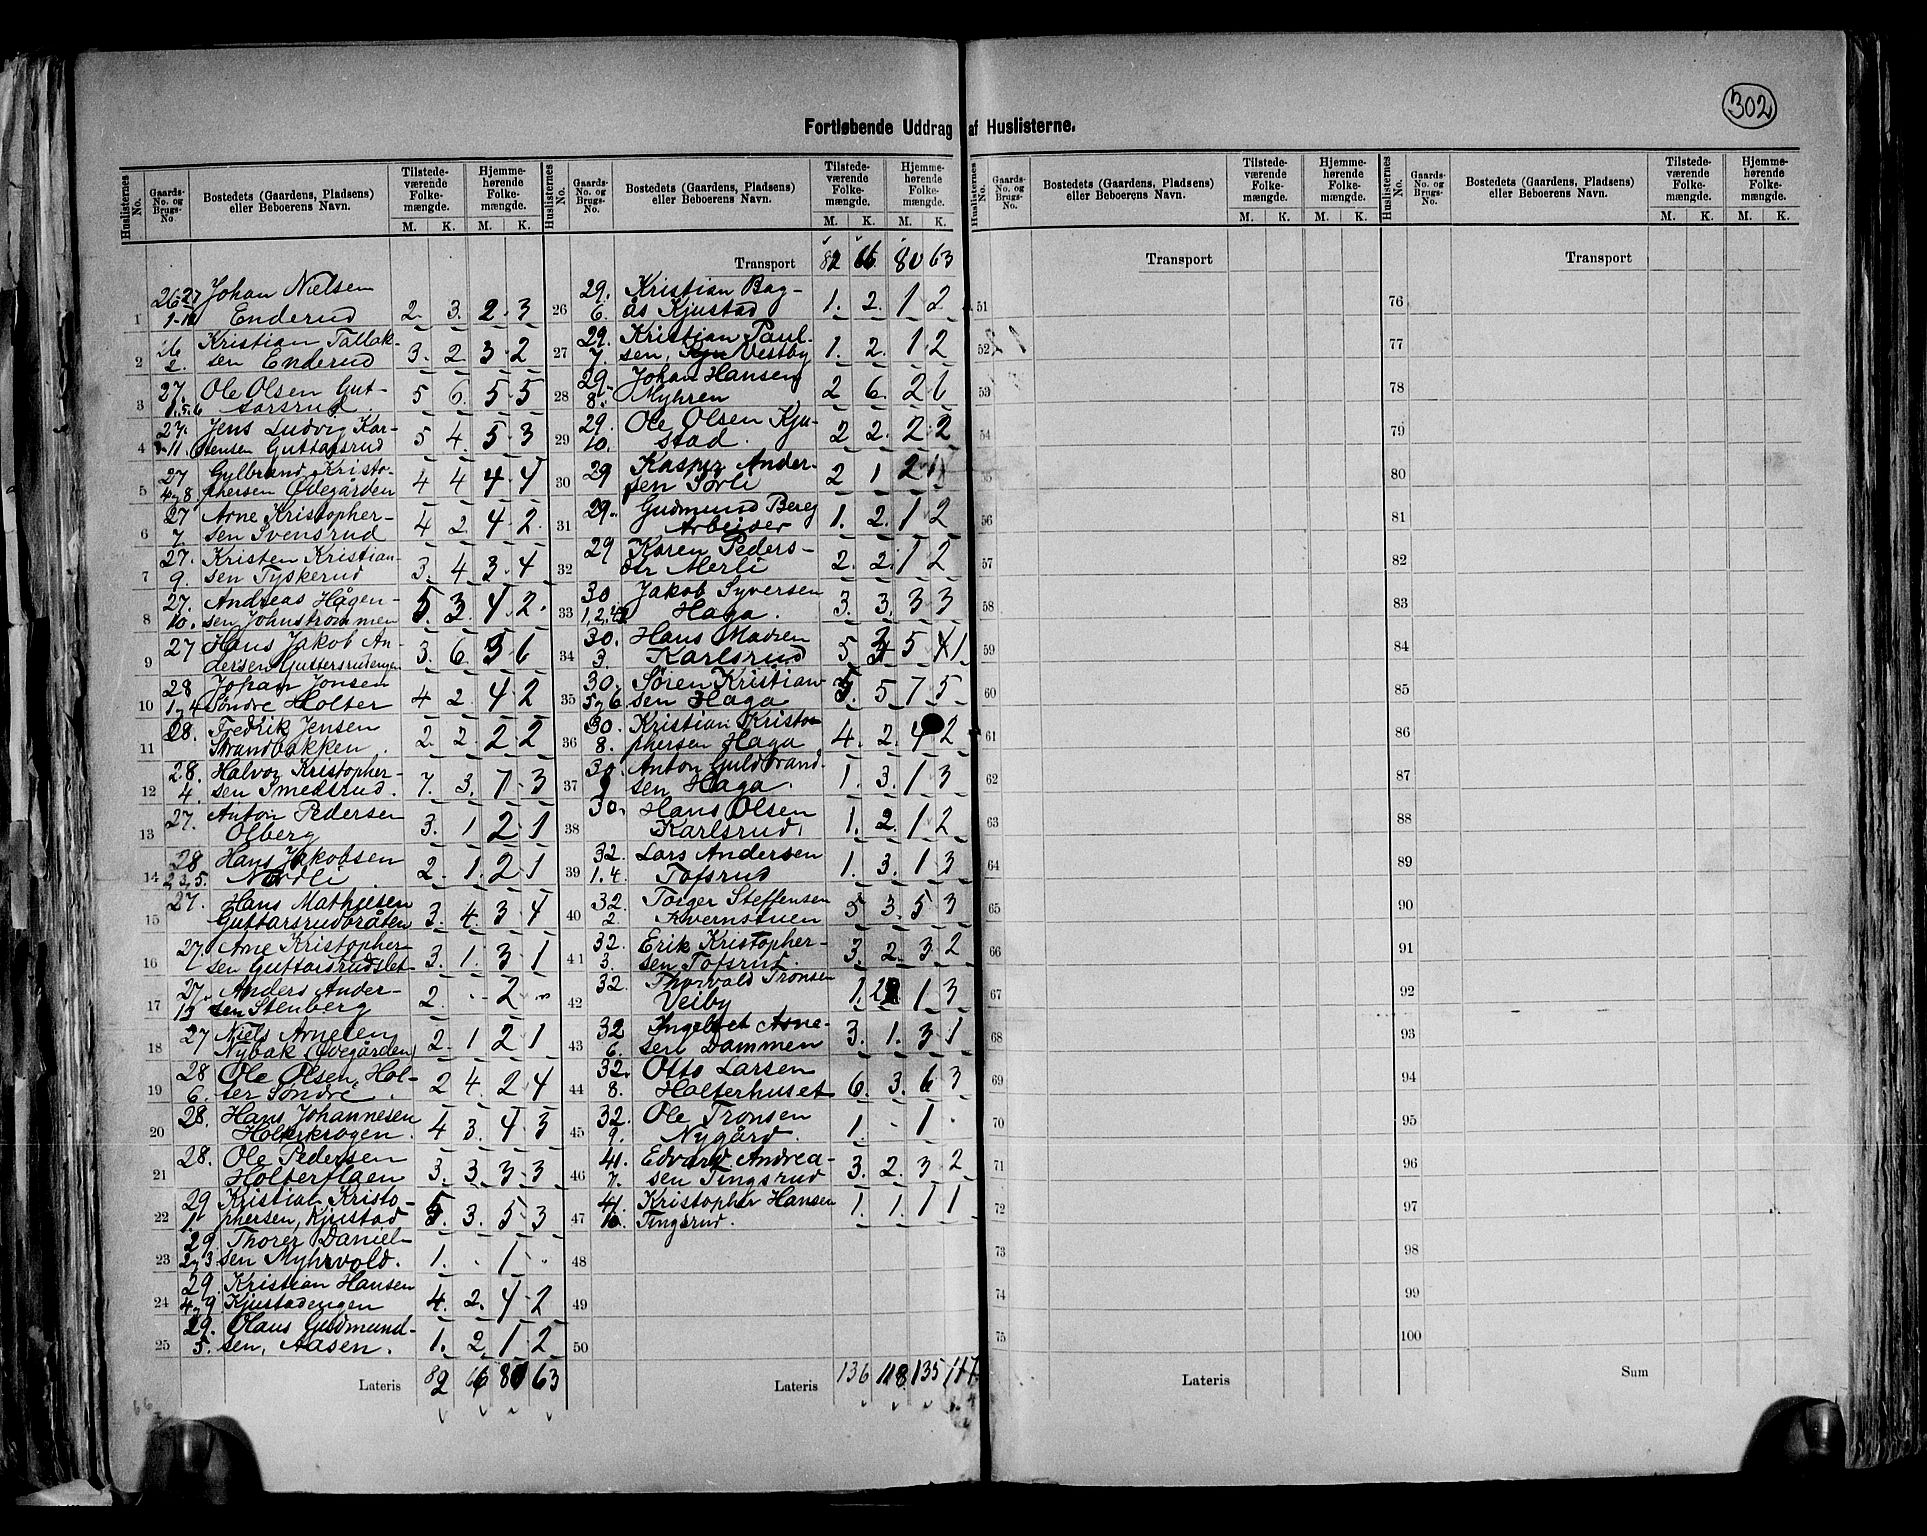 302
Fortløbende Uddrag af Huslisterne.
Huslisternes No.
Gaards-No. og Brugs-No.
Bostedets (Gaardens, Pladsens) eller Beboerens Navn.
Tilstedeværende Folkemængde. M. K.
Hjemmehørende Folkemængde. M. K.
1 26 27 Johan Nielsen
Enderud 2. 3. 2 3
2 Kristian Tallak-
2. sen Enderud 3. 2. 3 2
3 27. Ole Olsen Gut-
1,5,6 tarsrud. 5 6. 5 5
4 27. Jens Ludvig Kar-
11. stensen Guttarsrud 5 4. 5 3
5 27 Gulbrand Kristo-
4,8. phersen Ødegården 4 4 4 4
6 27 Arne Kristopher-
7. sen Svensrud 4 2 4 2.
7 27. Kristen Kristian-
9. sen Tyskerud 3. 4 3 4
8 27. Andreas Hågen-
10. sen Johnstrommen 5. 3. 4. 2.
9 27 Hans Jakob An-
dersen Guttersrudengen 3. 6. 3 6
10 28 Johan Jonsen
1,4 Søndre Holter 4 2. 4 2
11 28. Fredrik Jensen
Strandbakken. 2. 2 2 2
12 28. Halvor Kristopher-
4. sen Smedsrud. 7. 3. 7 3
13 27. Anton Pedersen
Olberg 3. 1 2 1
14 28 Hans Jakobsen
2,3,5. Nordli 2. 1. 2 1
15 27. Hans Mathiesen
Guttarsrudbråten 3. 4. 3 4
16 27. Arne Kristopher-
sen Guttarsrudslet 3. 1. 3 1
17 27 Anders Ander-
13 sen Stenberg 2. - 2 -
18 27 Niels Arnesen
Nybak (Ødegården) 2. 1 2 1
19 28 Ole Olsen Hol-
6. ter Søndre. 2 4. 2 4
20 28. Hans Johannesen
Holterkrogen. 4 3. 4 3
21 28. Ole Pedersen
Holterflaen 3. 3. 3 3
22 29 Kristian Kristo-
1. phersen, Kjustad 5. 3. 5 3
23 29. Thorer Daniel-
2,3 sen Myhrvold. 1. - 1 -
24 29. Kristian Hansen
4,9 Kjustadengen 4. 2. 4 2
25 29. Olaus Gudmund-
5. sen, Aasen. 1. 2 1 2
Lateris 82 66 80 63
Huslisternes No.
Gaards-No. og Brugs-No.
Bostedets (Gaardens, Pladsens) eller Beboerens Navn.
Tilstedeværende Folkemængde. M. K.
Hjemmehørende Folkemængde. M. K.
Transport 82 66. 80 63
26 29. Kristian Bag-
6. ås Kjustad 1. 2. 1 2
27 29. Kristian Paul-
7. sen, Vestby 1. 2. 1 2
28 29. Johan Hansen
8. Myhren 2 6. 2 6
29 29. Ole Olsen Kju-
10. stad. 2 2. 2 2
30 29 Kasper Ander-
sen Sørli 2 1 2 1
31 29. Gudmund Berg
Arbeider 1. 2. 1 2
32 29 Karen Peders-
dtr Merli 2. 2. 1 2
33 30 Jakob Syversen
1,2,4 Haga. 3. 3. 3 3
34 30. Hans Madsen
3. Karlsrud 5 5
35 30. Søren Kristian-
5,6 sen Haga 5. 7 5
36 30. Kristian Kristo-
8. phersen Haga 4. 2. 4 2
37 30. Anton Guldbrand-
sen Haga. 1. 3. 1 3
38 30. Hans Olsen
Karlsrud. 1. 2. 1 2
39 32. Lars Andersen
1.4. Tofsrud 1. 3. 1 3
40 32. Torger Steffensen
2. Kvernstuen 5 3. 5 3
41 32. Erik Kristopher-
3. sen Tofsrud. 3. 2. 3 2
42 32. Thorvald Tronsen
Veiby 1. 1 3
43 32 Ingebret Arne-
6. sen Dammen 3. 1. 3 1
44 32. Otto Larsen
8. Holterhuset 6. 3. 6 3
45 32. Ole Tronsen
9. Nygård. 1. - 1 -
46 41. Edvard Andrea-
7. sen Tingsrud 3. 2. 3 2
47 41. Kristopher Hansen
10. Tingsrud. 1. 1. 1 1
48
49
50
Lateris 136 118. 135 117
Huslisternes No.
Gaards-No. og Brugs-No.
Bostedets (Gaardens, Pladsens) eller Beboerens Navn.
Tilstedeværende Folkemængde. M. K.
Hjemmehørende Folkemængde. M. K.
Transport
51
52
53
54
55
56
57
58
59
60
61
62
63
64
65
66
67
68
69
70
71
72
73
74
75
Lateris
Huslisternes No.
Gaards-No. og Brugs-No.
Bostedets (Gaardens, Pladsens) eller Beboerens Navn.
Tilstedeværende Folkemængde. M. K.
Hjemmehørende Folkemængde. M. K.
Transport
76
77
78
79
80
81
82
83
84
85
86
87
88
89
90
91
92
93
94
95
96
97
98
99
100
Sum